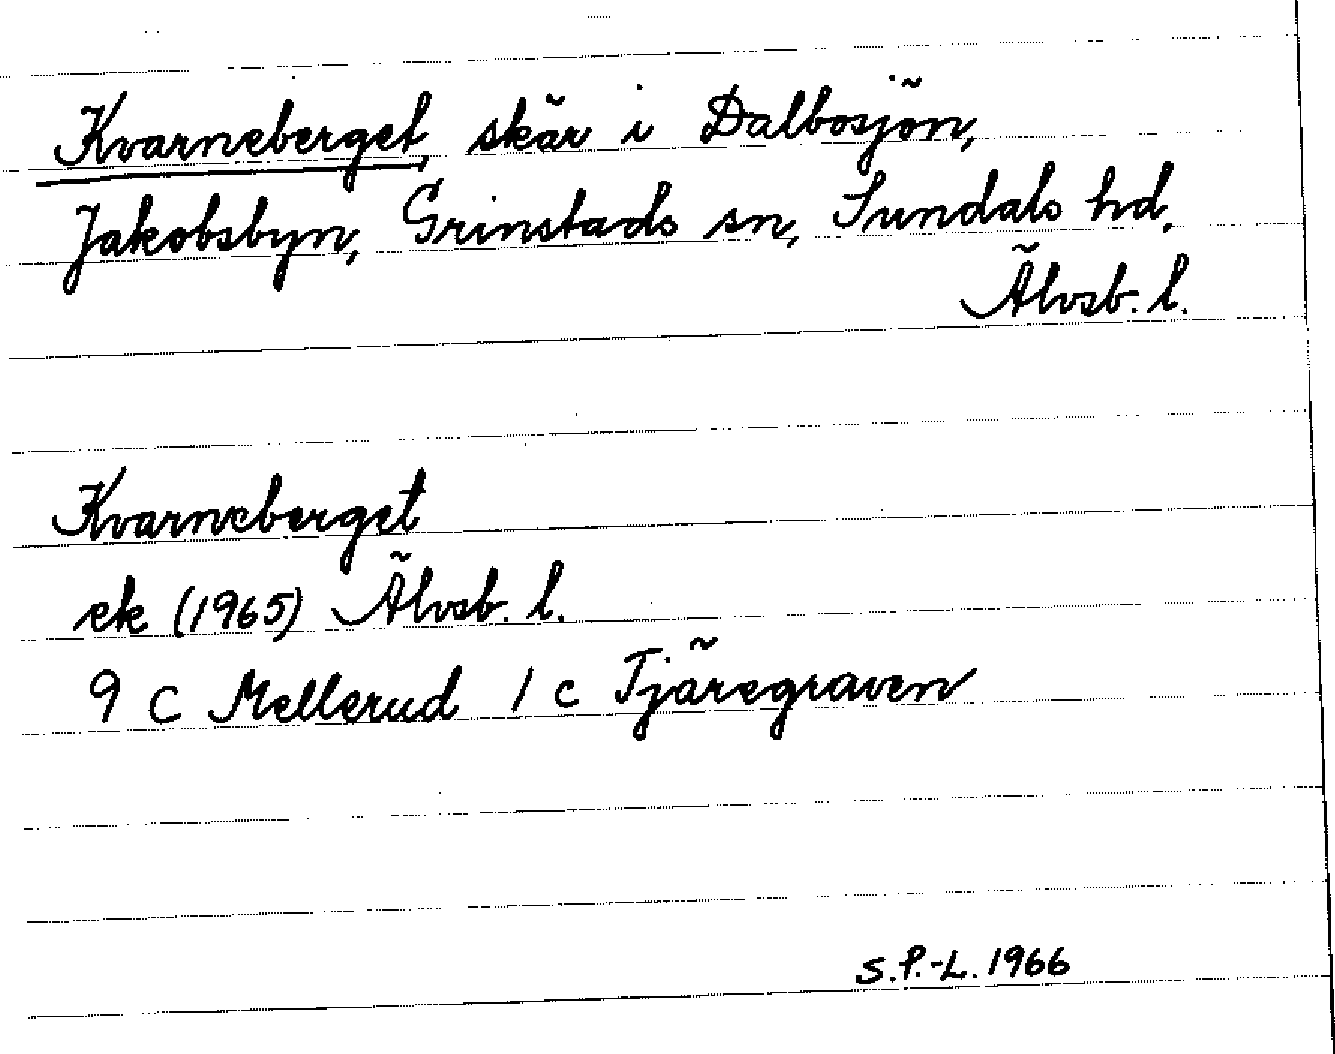 Kvarneberget, skär i Dalbosjön,
Jakobsbyn, Grinstads sn, Sundals hd,
Älvsb. l.
Kvarneberget
ek (1965) Älvsb. l.
9 C Mellerud 1 c Tjäregraven
S.P.-L. 1966